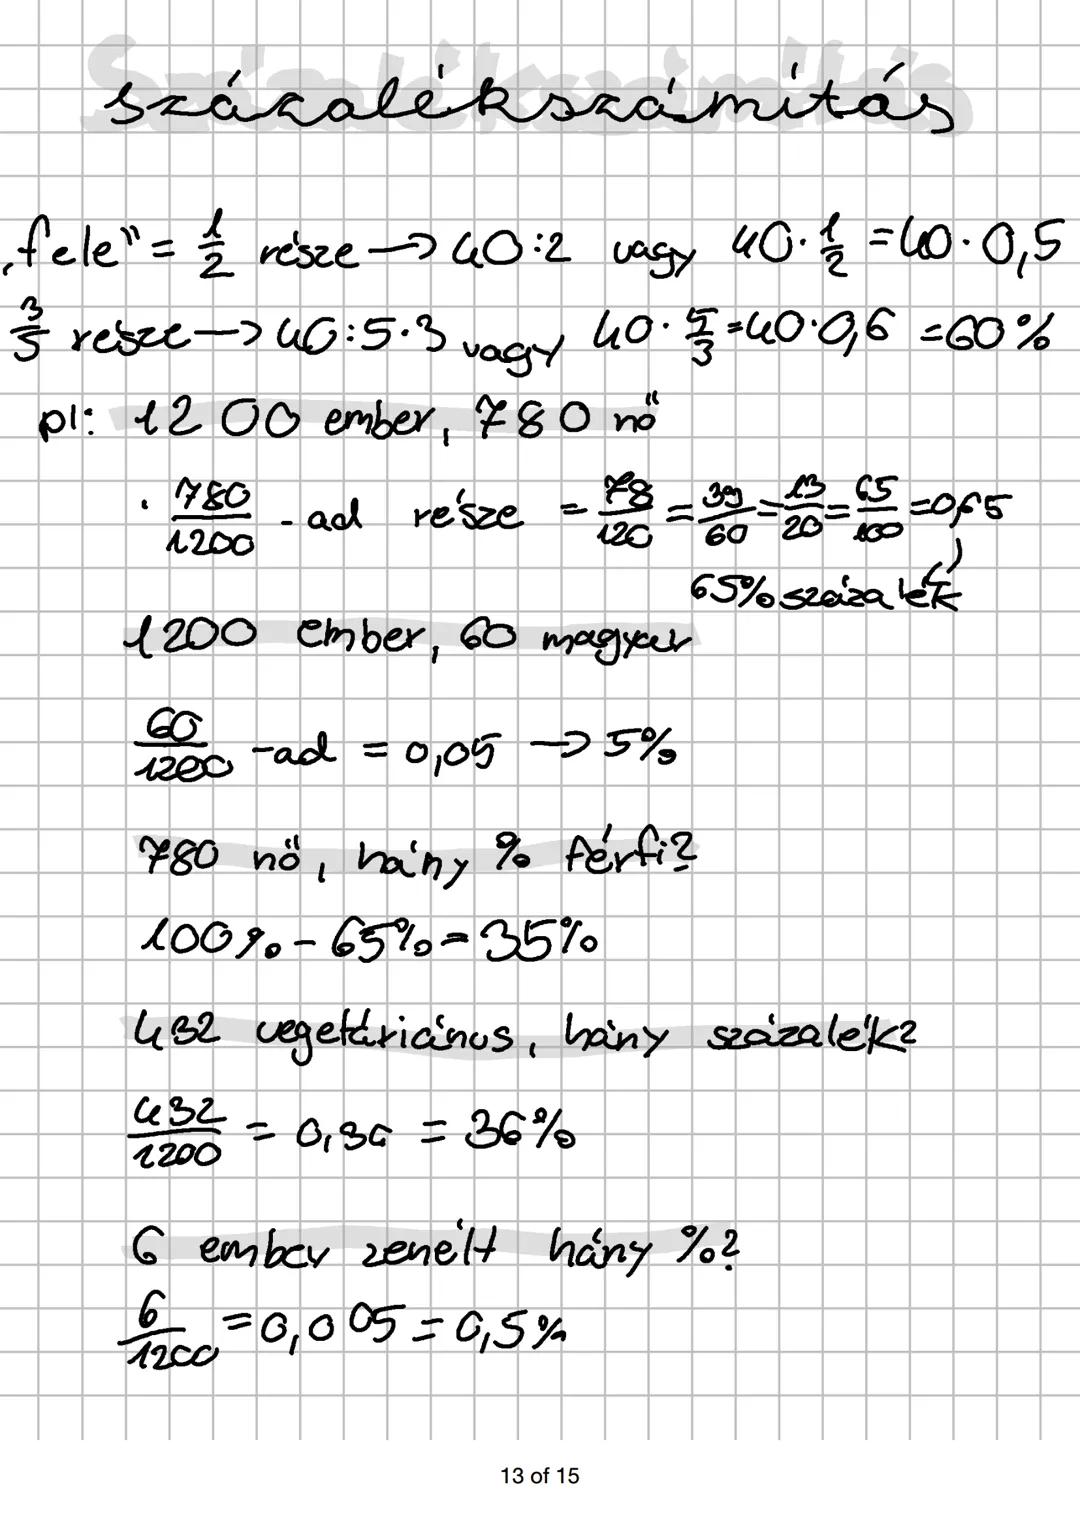 Százalékszámítás
„fele" = 1/2 része → 40:2 vagy 40·1/2 = 40·0,5
3/5 része → 40:5·3 vagy 40·5/3 = 40·0,6 = 60%
pl: 1200 ember, 780 nő
· 780/1200 - ad része = 78/120 = 39/60 = 13/20 = 65/100 = 0,65
65% százalék
1200 ember, 60 magyar
60/1200 -ad = 0,05 → 5%
780 nő, hány % férfi?
100% - 65% = 35%
432 vegetáriánus, hány százalék?
432/1200 = 0,36 = 36%
6 ember zenélt hány %?
6/1200 = 0,005 = 0,5%
13 of 15